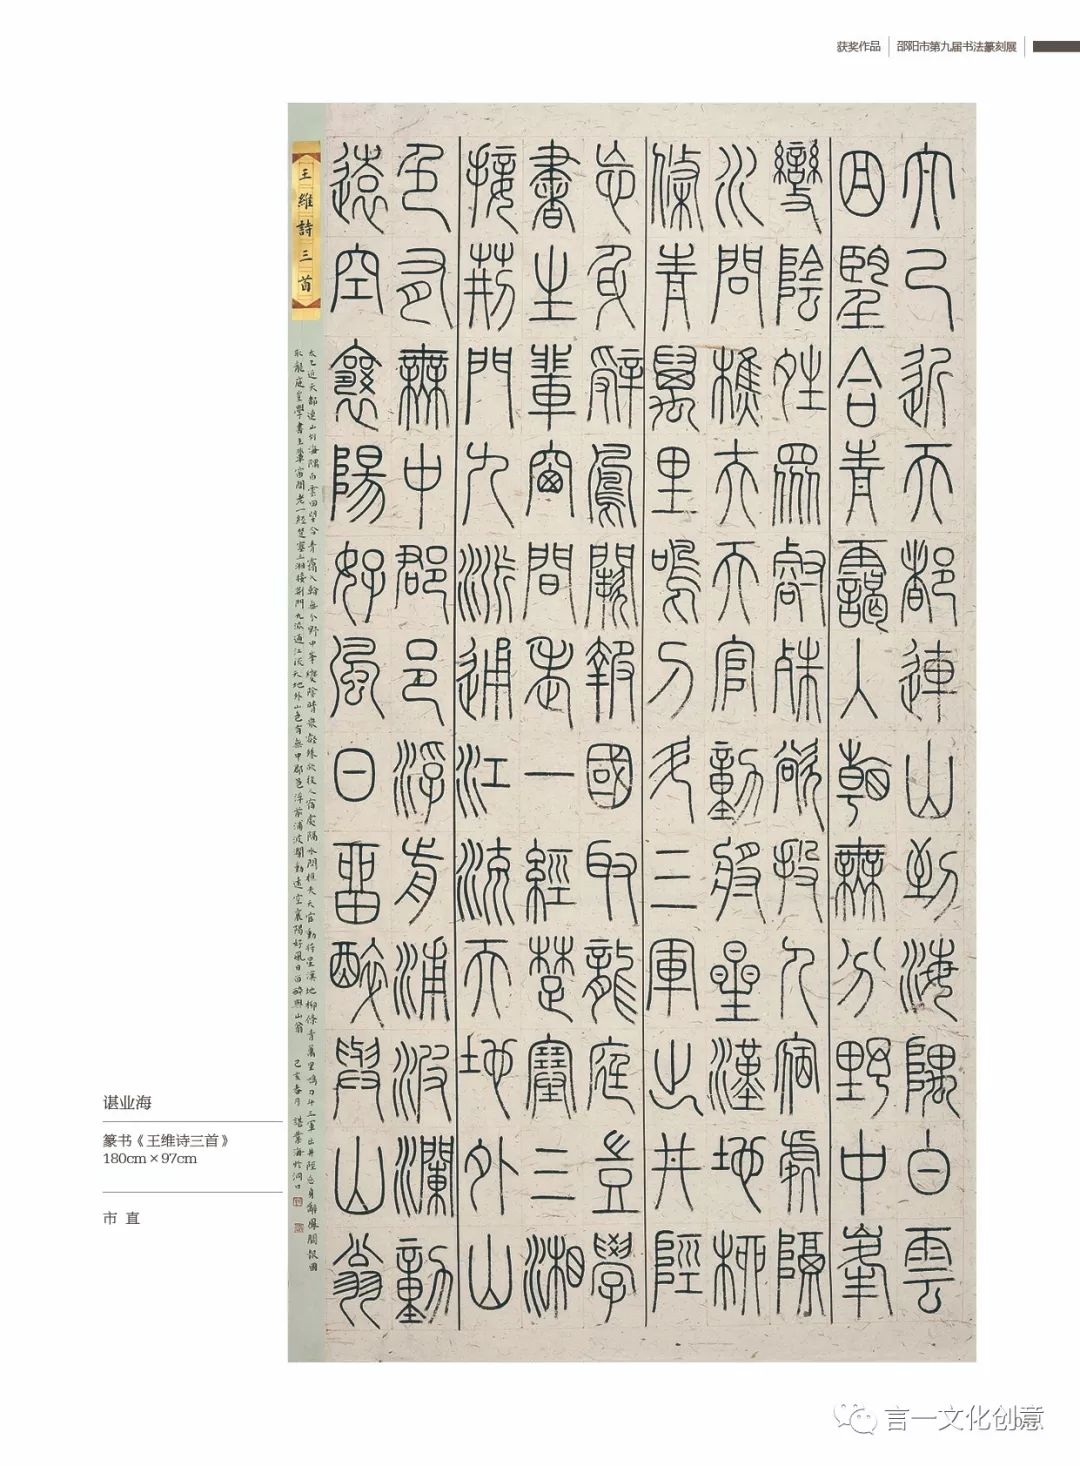 获奖作品 邵阳市第九届书法篆刻展
太乙近天都連山到海隅白雲
回望合青靄入看無分野中峯
變陰晴眾壑殊欲投人宿處隔
水問樵夫天官動將星漢地柳
條青萬里鳴刁斗三軍出井陘
忘身辭鳳闕報國取龍庭豈學
書生輩窗間老一經楚塞三湘
接荊門九派通江流天地外山
色有無中郡邑浮前浦波瀾動
遠空襄陽好風日留醉與山翁
王維詩三首
太乙近天都連山到海隅白雲回望合青靄入看無分野中峯變陰晴眾壑殊欲投人宿處隔水問樵夫天官動將星漢地柳條青萬里鳴刁斗三軍出井陘忘身辭鳳闕報國
取龍庭豈學書生輩窗間老一經楚塞三湘接荊門九派通江流天地外山色有無中郡邑浮前浦波瀾動遠空襄陽好風日留醉與山翁 己亥春月 諶業海於洞口
谌业海
篆书《王维诗三首》
180cm×97cm
市 直
言一文化创意